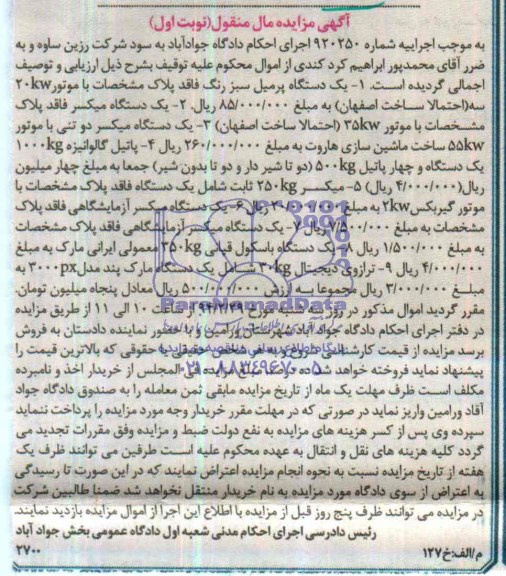 آگهی مزایده مال منقول(نوبت اول)
به موجب اجراییه شماره ۹۲۰۲۵۰ اجرای احکام دادگاه جوادآباد به سود شرکت رزین ساوه و به
ضرر آقای محمدپور ابراهیم کرد کندی از اموال محکوم علیه توقیف بشرح ذیل ارزیابی و توصیف
اجمالی گردیده است. ۱- یک دستگاه پرمیل سبز رنگ فاقد پلاک مشخصات با موتور ۲۰kw
سه(احتمالا ساخت اصفهان) به مبلغ ۸۵/۰۰۰/۰۰۰ ریال. ۲- یک دستگاه میکسر فاقد پلاک
مشخصات با موتور ۳۵kw (احتمالا ساخت اصفهان) ۳- یک دستگاه میکسر دو تنی با موتور
۵۵kw ساخت ماشین سازی هاروت به مبلغ ۲۶۰/۰۰۰/۰۰۰ ریال ۴- پاتیل گالوانیزه ۱۰۰۰kg
یک دستگاه و چهار پاتیل ۵۰۰kg (دو تا شیر دار و دو تا بدون شیر) جمعا به مبلغ چهار میلیون
ریال(۴/۰۰۰/۰۰۰ ریال) ۵- میکسر ۲۵۰kg ثابت شامل یک دستگاه فاقد پلاک مشخصات با
موتور گیربکس ۲kw به مبلغ ریال ۶- یک دستگاه میکسر آزمایشگاهی فاقد پلاک
مشخصات به مبلغ ۷/۵۰۰/۰۰۰ ریال ۷- یک دستگاه میکسر آزمایشگاهی فاقد پلاک مشخصات
به مبلغ ۱/۵۰۰/۰۰۰ ریال ۸- یک دستگاه باسکول قپانی ۳۵۰kg معمولی ایرانی مارک به مبلغ
۴/۰۰۰/۰۰۰ ریال ۹- ترازوی دیجیتال ۳۰kg شامل یک دستگاه مارک پند مدل ۳۰۰۰px به
مبلغ ۳/۰۰۰/۰۰۰ ریال مجموعا به ارزش ۵۰۰/۰۰۰/۰۰۰ ریال معادل پنجاه میلیون تومان.
مقرر گردید اموال مذکور در روز سه شنبه مورخ ۹۴/۲/۲۹ از ساعت ۱۰ الی ۱۱ از طریق مزایده
در دفتر اجرای احکام دادگاه جواد آباد شهرستان ورامین و با حضور نماینده دادستان به فروش
برسد مزایده از قیمت کارشناسی شروع و به هر شخص حقیقی یا حقوقی که بالاترین قیمت را
پیشنهاد نماید فروخته خواهد شد ده درصد مبلغ مزایده فی المجلس از خریدار اخذ و نامبرده
مکلف است ظرف مهلت یک ماه از تاریخ مزایده مابقی ثمن معامله را به صندوق دادگاه جواد
آباد ورامین واریز نماید در صورتی که در مهلت مقرر خریدار وجه مورد مزایده را پرداخت ننماید
سپرده وی پس از کسر هزینه های مزایده به نفع دولت ضبط و مزایده وفق مقررات تجدید می
گردد کلیه هزینه های نقل و انتقال به عهده محکوم علیه است طرفین می توانند ظرف یک
هفته از تاریخ مزایده نسبت به نحوه انجام مزایده اعتراض نمایند که در این صورت تا رسیدگی
به اعتراض از سوی دادگاه مورد مزایده به نام خریدار منتقل نخواهد شد ضمنا طالبین شرکت
در مزایده می توانند ظرف پنج روز قبل از مزایده با اطلاع این اجرا از اموال مزایده بازدید نمایند.
رئیس دادرسی اجرای احکام مدنی شعبه اول دادگاه عمومی بخش جواد آباد
م/الف:خ۱۲۷ ۲۷۰۰
ParsNamadData
۰۲۱-۸۸۳۴۹۶۷۰-۵